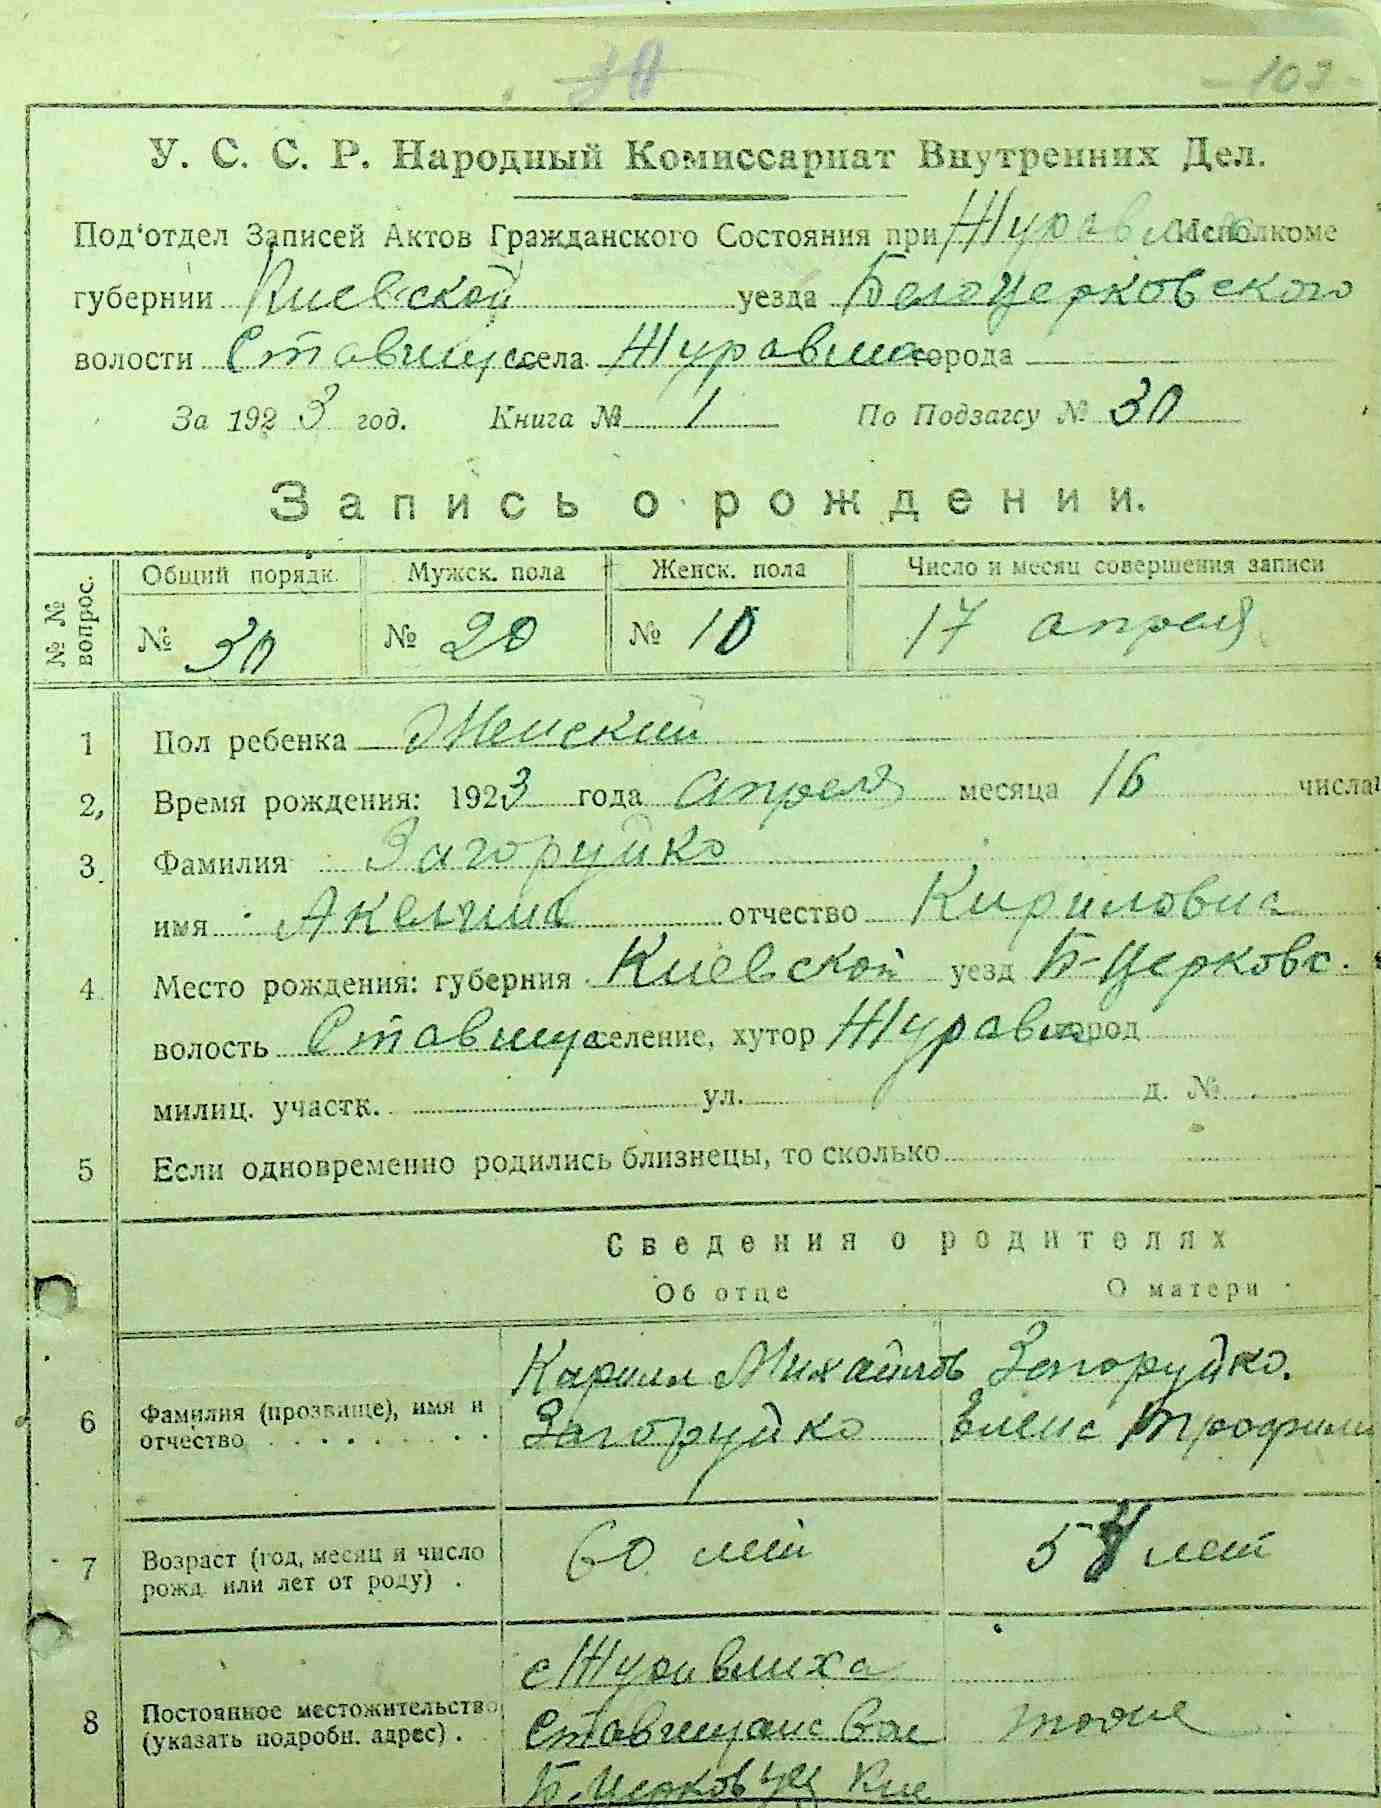 30
103
У. С. С. Р. Народный Комиссариат Внутренних Дел.
Под'отдел Записей Актов Гражданского Состояния при Журавлис Исполкоме
губернии Киевской уезда Белоцерковского
волости Ставищ села Журавлиха города
За 1923 год. Книга № 1 По Подзагсу № 30
Запись о рождении.
№ № вопрос. Общий порядк. Мужск. пола Женск. пола Число и месяц совершения записи
№ 30 № 20 № 10 17 апреля
1 Пол ребенка Женский
2, Время рождения: 1923 года апреля месяца 16 числа
3 Фамилия Загоруйко
имя Акелина отчество Кириловна
4 Место рождения: губерния Киевской уезд Б-Церковс.
волость Ставищ селение, хутор Журавли город
милиц. участк. ул. д. №
5 Если одновременно родились близнецы, то сколько
Сведения о родителях
Об отце О матери
6 Фамилия (прозвище), имя и отчество Кирилл Михайлов Загоруйко Загоруйко. Елена Трофим
7 Возраст (год, месяц и число рожд. или лет от роду) . 60 лет 54 лет
8 Постоянное местожительство (указать подробн. адрес) . с Журавлиха Ставищанс Вол Б. Церков уез Кие тоже